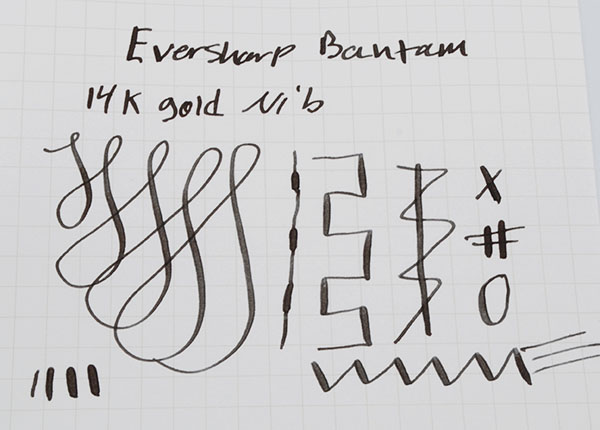 Eversharp Bantam
14K gold Nib
X
#
O